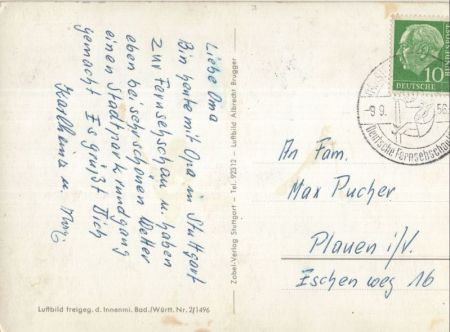 Liebe Oma
Bin heute mit Opa in Stuttgart
zur Fernsehschau u. haben
eben bei sehr schönen Wetter
einen Stadtparkrundgang
gemacht Es grüßt Dich
Karlheinz u.
Luftbild freigeg. d. Innenmi. Bad./Württ. Nr. 2/1496
Zobel-Verlag Stuttgart - Tel. 92312 - Luftbild Albrecht Brugger
10
DEUTSCHE
-9.9.
56
Deutsche Fernsehschau
An Fam.
Max Pucher
Plauen i/V.
Eschenweg 16